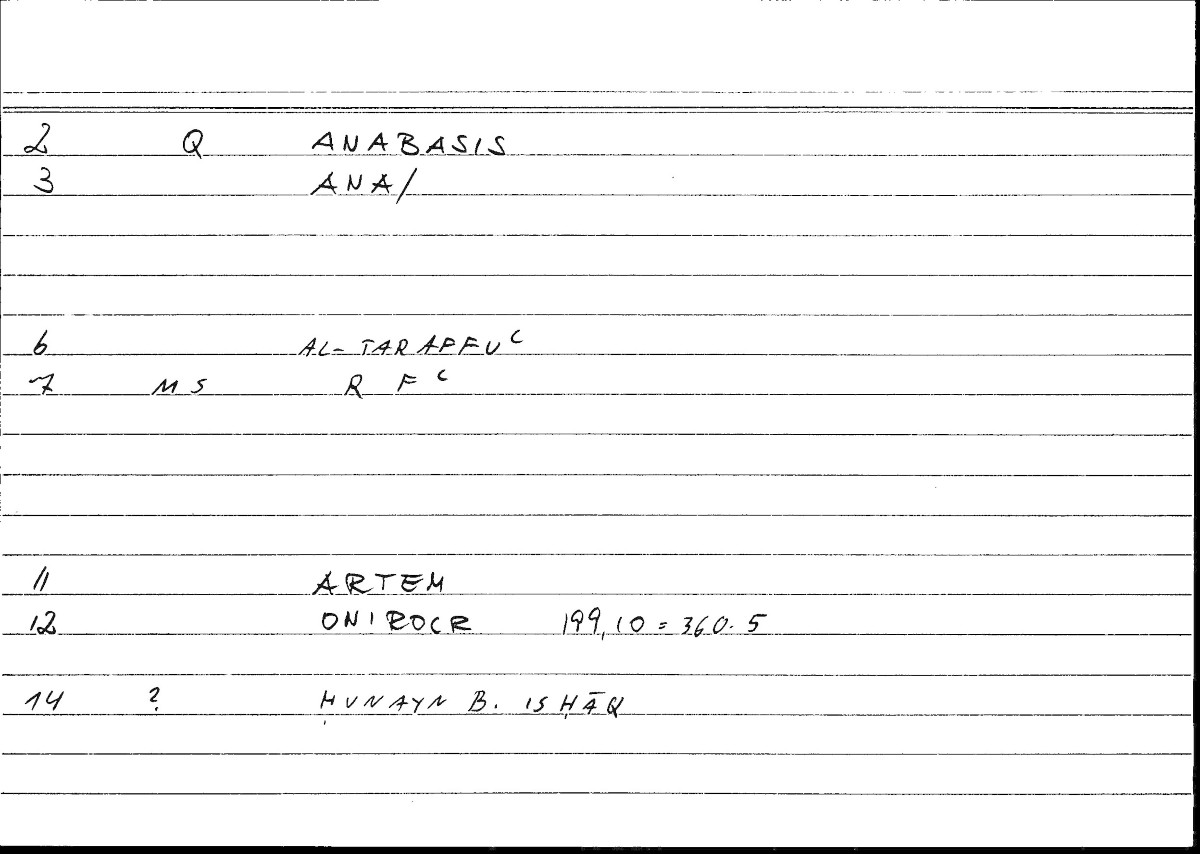 2 Q ANABASIS
3 ANA/
6 AL-TARAFFUᶜ
7 MS R Fᶜ
11 ARTEM
12 ONIROCR 199,10 = 360.5
14 ? ḤUNAYN B. ISḤĀQ